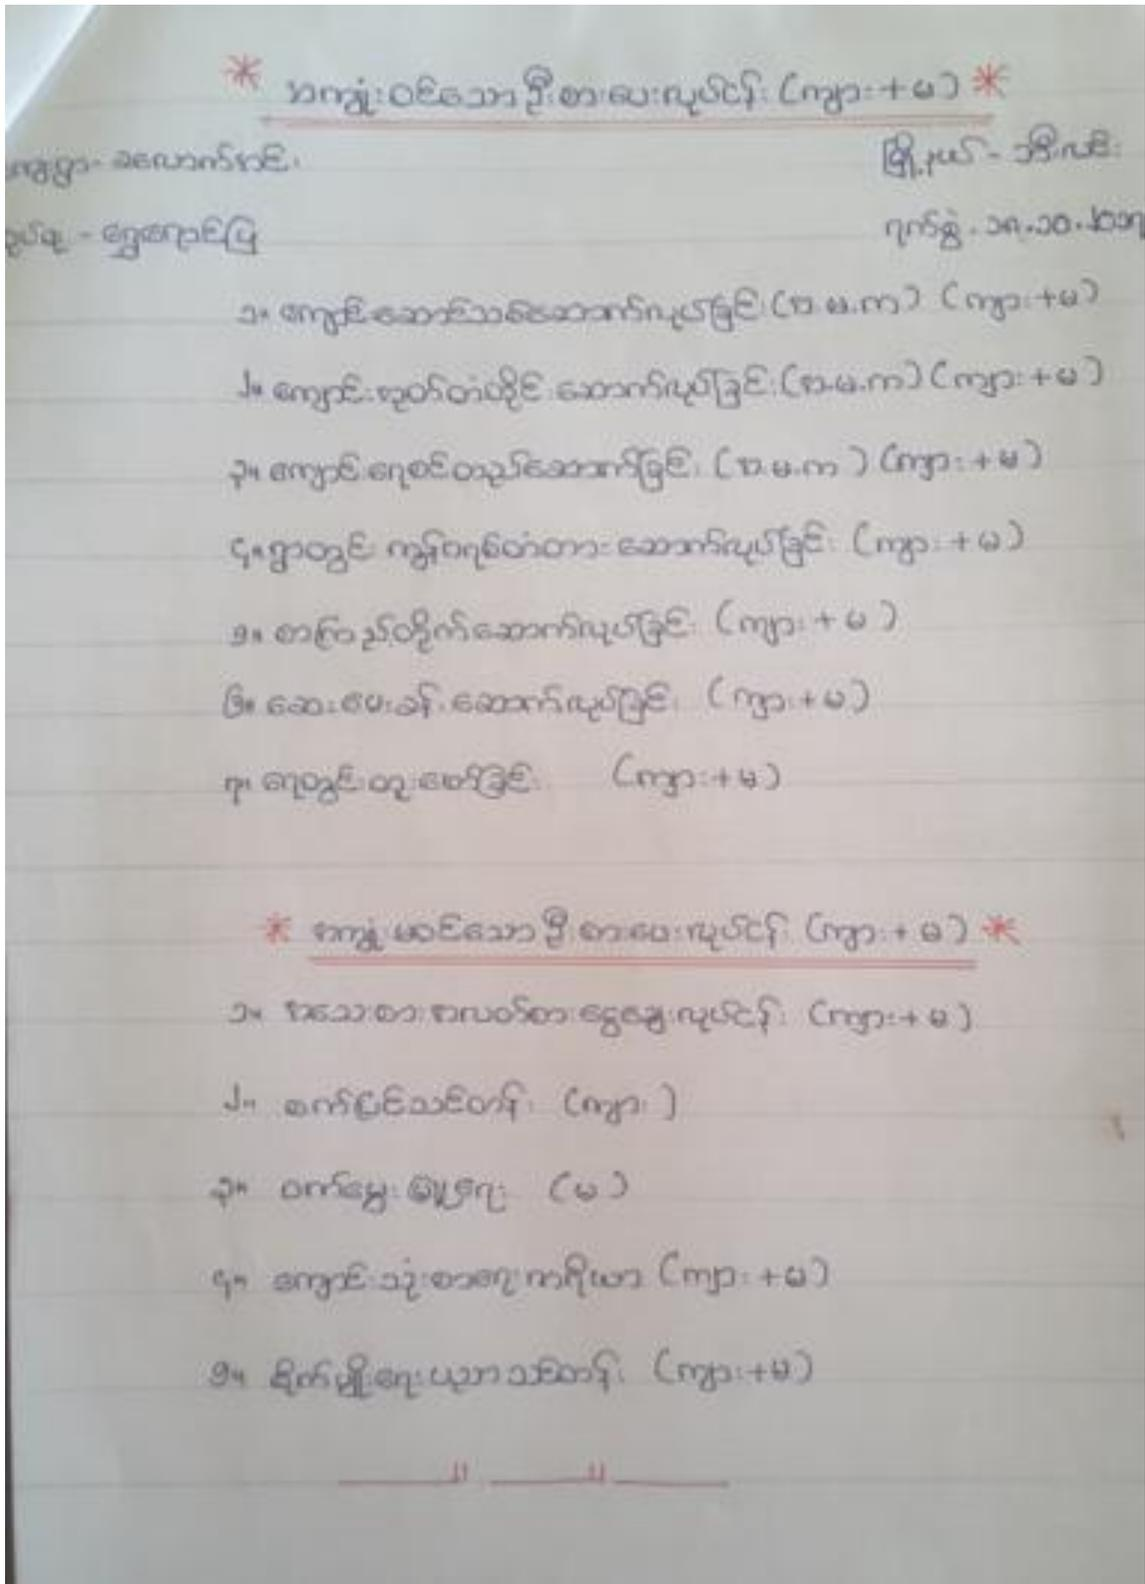 * အကျုံးဝင်သော ဦးစားပေးလုပ်ငန်း (ကျား + မ) *
ကျေးရွာ - ခလောက်
မြို့နယ် - ဘီးလင်း
ရွှေရောင်ပြ
ရက်စွဲ - ၁၈.၁၀.၂၀၁၇
၁။ ကျောင်းဆောင်သစ်ဆောက်လုပ်ခြင်း (အ.မ.က) (ကျား + မ)
၂။ ကျောင်းအုတ်တံတိုင်း ဆောက်လုပ်ခြင်း (အ.မ.က) (ကျား + မ)
၃။ ကျောင်းရေစင်တည်ဆောက်ခြင်း (အ.မ.က) (ကျား + မ)
၄။ ရွာတွင်း ကွန်ကရစ်တံတားဆောက်လုပ်ခြင်း (ကျား + မ)
၅။ စာကြည့်တိုက်ဆောက်လုပ်ခြင်း (ကျား + မ)
၆။ ဆေးပေးခန်းဆောက်လုပ်ခြင်း (ကျား + မ)
၇။ ရေတွင်းတူးဖော်ခြင်း (ကျား + မ)
* အကျုံးမဝင်သော ဦးစားပေးလုပ်ငန်း (ကျား + မ) *
၁။ အသေးစားအလတ်စားငွေချေးလုပ်ငန်း (ကျား + မ)
၂။ စက်ပြင်သင်တန်း (ကျား)
၃။ ဝက်မွေးမြူရေး (မ)
၄။ ကျောင်းသုံးစာရေးကိရိယာ (ကျား + မ)
၅။ စိုက်ပျိုးရေးပညာသင်တန်း (ကျား + မ)